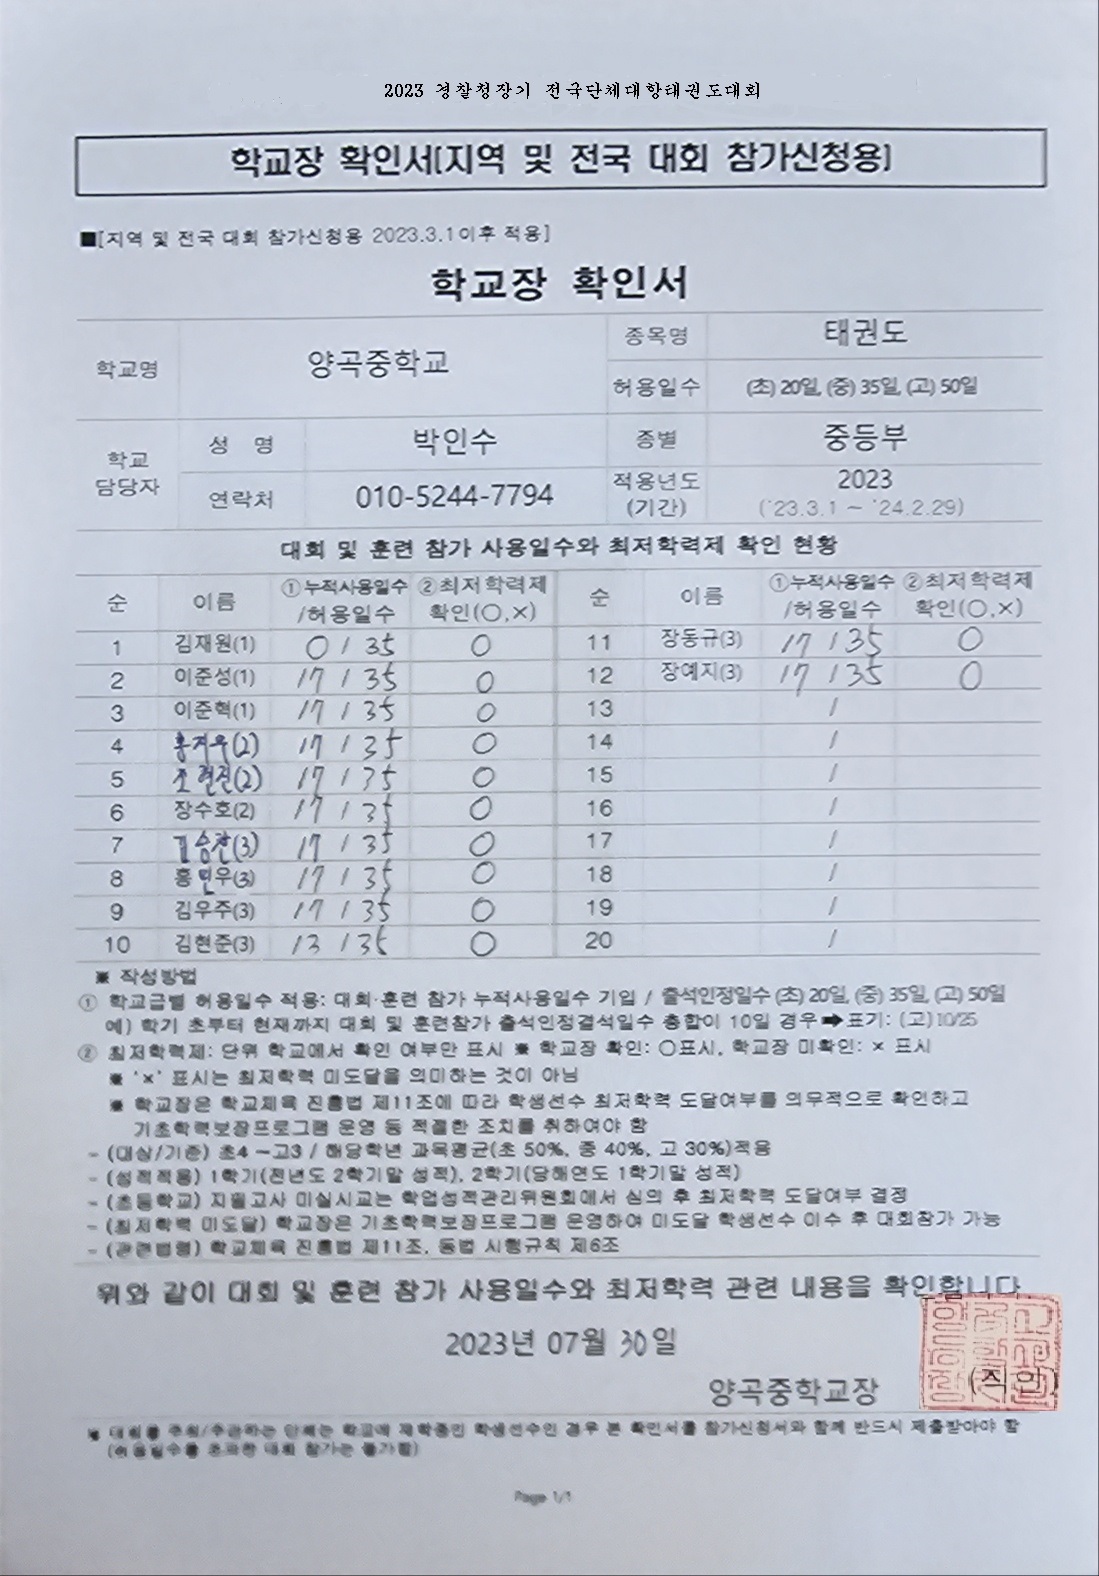 2023 경찰청장기 전국단체대항태권도대회
학교장 확인서[지역 및 전국 대회 참가신청용]
■[지역 및 전국 대회 참가신청용 2023.3.1이후 적용]
학교장 확인서
학교명 양곡중학교 종목명 태권도
허용일수 (초) 20일, (중) 35일, (고) 50일
학교 담당자 성 명 박인수 종별 중등부
연락처 010-5244-7794 적용년도 (기간) 2023 ('23.3.1 ~ '24.2.29)
대회 및 훈련 참가 사용일수와 최저학력제 확인 현황
순 이름 ①누적사용일수 /허용일수 ②최저학력제 확인(○,×) 순 이름 ①누적사용일수 /허용일수 ②최저학력제 확인(○,×)
1 김재원(1) 0 / 35 ○ 11 장동규(3) 17 / 35 ○
2 이준성(1) 17 / 35 ○ 12 장예지(3) 17 / 35 ○
3 이준혁(1) 17 / 35 ○ 13 /
4 (2) 17 / 35 ○ 14 /
5 조현진(2) 17 / 35 ○ 15 /
6 장수호(2) 17 / 35 ○ 16 /
7 (3) 17 / 35 ○ 17 /
8 홍민우(3) 17 / 35 ○ 18 /
9 김우주(3) 17 / 35 ○ 19 /
10 김현준(3) 13 / 35 ○ 20 /
※ 작성방법
① 학교급별 허용일수 적용: 대회·훈련 참가 누적사용일수 기입 / 출석인정일수 (초) 20일, (중) 35일, (고) 50일
예) 학기 초부터 현재까지 대회 및 훈련참가 출석인정결석일수 총합이 10일 경우➡표기: (고)10/25
② 최저학력제: 단위 학교에서 확인 여부만 표시 ※ 학교장 확인: ○표시, 학교장 미확인: × 표시
※ '×' 표시는 최저학력 미도달을 의미하는 것이 아님
※ 학교장은 학교체육 진흥법 제11조에 따라 학생선수 최저학력 도달여부를 의무적으로 확인하고
기초학력보장프로그램 운영 등 적절한 조치를 취하여야 함
- (대상/기준) 초4 ~고3 / 해당학년 과목평균(초 50%, 중 40%, 고 30%)적용
- (성적적용) 1학기(전년도 2학기말 성적), 2학기(당해연도 1학기말 성적)
- (초등학교) 지필고사 미실시교는 학업성적관리위원회에서 심의 후 최저학력 도달여부 결정
- (최저학력 미도달) 학교장은 기초학력보장프로그램 운영하여 미도달 학생선수 이수 후 대회참가 가능
- (관련법령) 학교체육 진흥법 제11조, 동법 시행규칙 제6조
위와 같이 대회 및 훈련 참가 사용일수와 최저학력 관련 내용을 확인합니다
2023년 07월 30일
양곡중학교장 (직인)
※ 대회를 주최/주관하는 단체는 학교에 재학중인 학생선수인 경우 본 확인서를 참가신청서와 함께 반드시 제출받아야 함
(허용일수를 초과한 대회 참가는 불가함)
Page 1/1